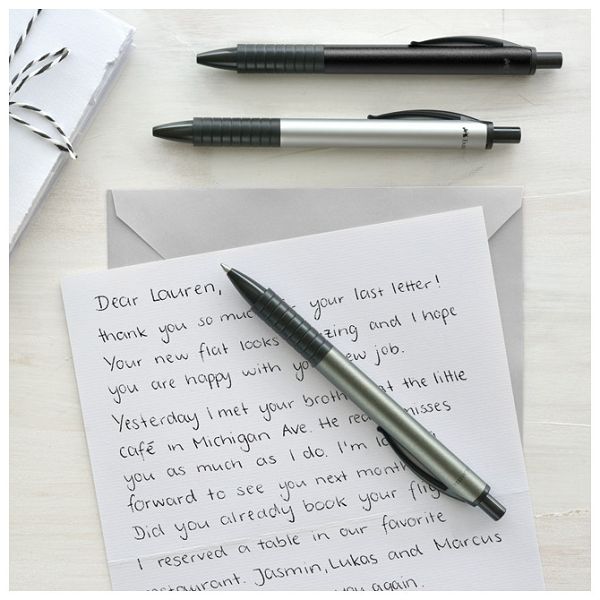 Dear Lauren,
thank you so your last letter!
Your new flat looks and I hope
you are happy with new job.
Yesterday i met your at the little
café in Michigan Ave. He misses
you as much as I do. I'm
forward to see you next month
Did you already book your
I reserved a table in our favorite
Jasmin, Lukas and Marcus
you again.